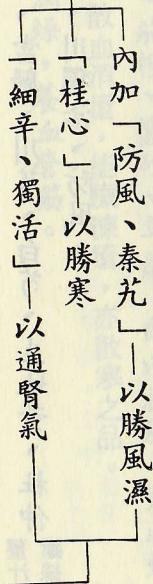 內加「防風、秦艽」—以勝風濕
「桂心」—以勝寒
「細辛、獨活」—以通腎氣—